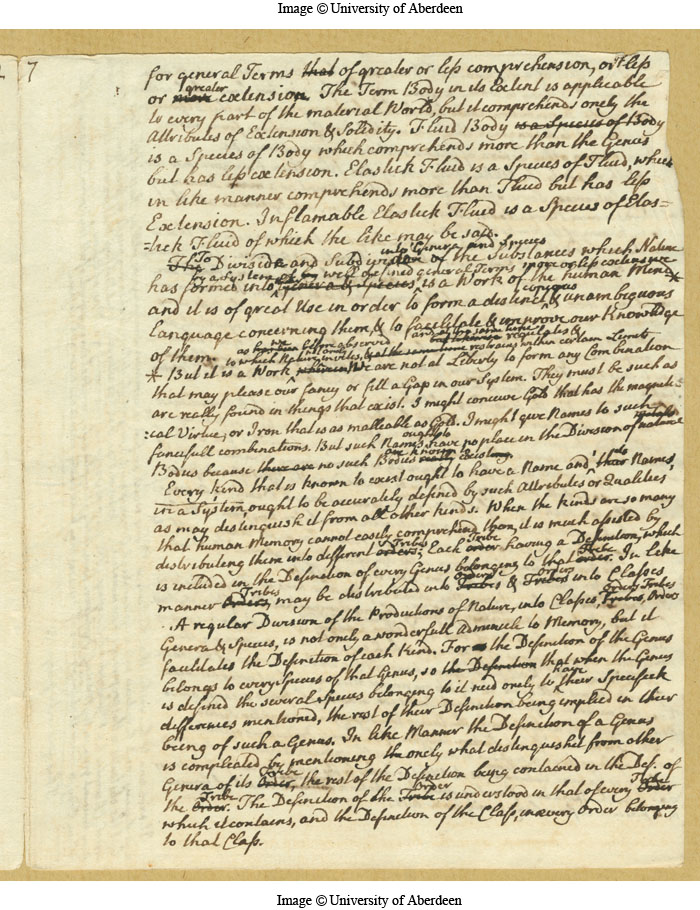 Image © University of Aberdeen
7
for general Terms that of greater or less comprehension, or less
greater
or more extension. The Term Body in its Extent is applicable
to every part of the material World, but it comprehends onely the
Attributes of Extension & Solidity. Fluid Body is a Species of Body
is a Species of Body which comprehends more than the Genus
but has less extension. Elastick Fluid is a Species of Fluid, which
in like manner comprehends more than Fluid but has less
Extension. Inflamable Elastick Fluid is a Species of Elas=
=tick Fluid of which the like may be said.
into Genera and Species
The To Divide and Subdivide of the Substances which Nature
by a System of well defined general Terms more or less extensive
has formed into Genera & Species is a Work of the human Mind
copious
and it is of great Use in order to form a distinct & unambiguous
Language concerning them, & to facilitate & improve our Knowledge
of them.
as we before observed and at the same time regulates &
to which Nature invites, & at the same time restrains within certain Limits
* But it is a Work We are not at Liberty to form any Combination
that may please our fancy or fill a Gap in our System. They must be such as
are really found in things that exist. I might conceive Gold that has the magneti=
=cal Virtue, or Iron that is as malleable as Gold. I might give Names to such
fancifull combinations. But such Names have no place in the Division of natural
ought to
are known to
Bodies because there are no such Bodies really existing.
Every kind that is known to exist ought to have a Name and their Names
in a System, ought to be accurately defined by such Attributes or Qualities
as may distinguish it from all other kinds. When the kinds are so many
that human Memory cannot easily comprehend them, it is much assisted by
Tribes Tribe
distributing them into different orders; Each order having a Definition, which
Tribe
is included in the Definition of every Genus belonging to that order. In like
Tribes Orders Orders
manner Orders, may be distributed into Tribes & Tribes into Classes
A regular Division of the Productions of Nature, into Classes, Tribes, Orders
Orders Tribes
Genera & Species, is not onely a wonderfull Adminicle to Memory, but it
facilitates the Definition of each Kind. For the Definition of the Genus
belongs to every Species of that Genus, so the Definition that when the Genus
have
is defined the several Species belonging to it need onely to their Specifick
differences mentioned, the rest of their Definition being implied in their
being of such a Genus. In like Manner the Definition of a Genus
is complicated by mentioning the onely what distinguishes it from other
Tribe
Genera of its Order, the rest of the Definition being contained in the Def. of
Tribe Order Tribe
the Order. The Definition of the Tribe is understood in that of every Order
which it contains, and the Definition of the Class, in every Order belonging
to that Class.
Image © University of Aberdeen